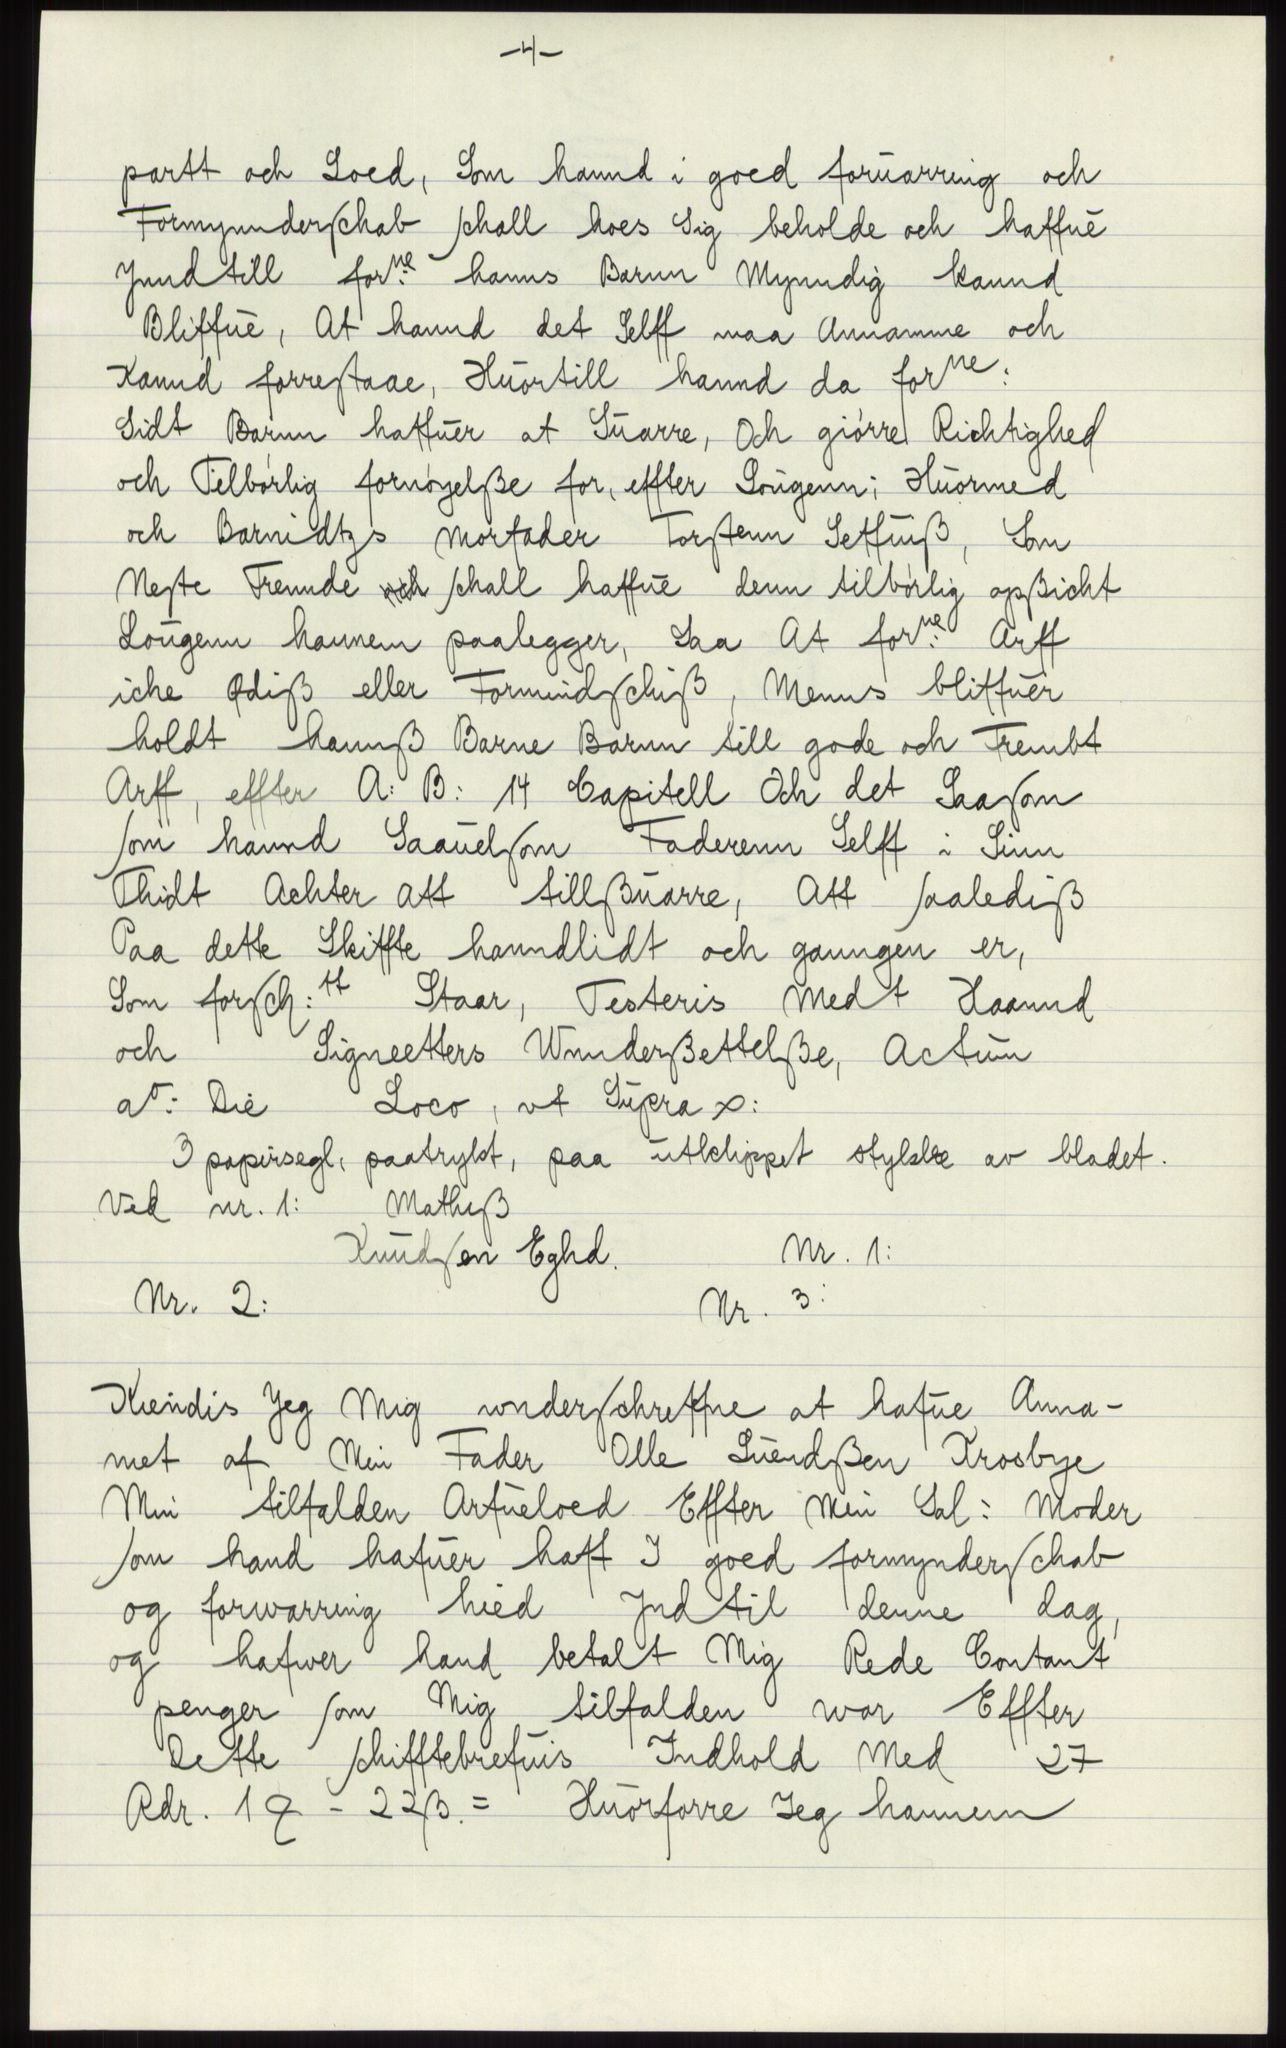 -4-
partt och Loed, Som hannd i goed foruarring och
Formynnderschab schall hoes Sig beholde och haffue
Jnndtill forne: hanns Barnn Mynndig kannd
Bliffue, At hannd det Selff maa Annamme och
Kannd forrestaae, Huortill hannd da forne:
Sidt Barnn haffuer at Suarre, Och giörre Richtighed
och Tilbørlig fornøyelße for, effter Lougenn; Huormed
och Barnidtzs Morfader Torstenn Setfuß, Som
Neste Frennde och schall haffue denn tilbørlig opßicht
Lougenn hannem paalegger, Saa At forne: Arff
iche ødiß eller Formindschiß, Menns bliffuer
holdt hannß Barne Barnn till gode och Frembt
Arff, effter A: B: 14 Capitell Och det Saasom
som hannd Saauelsom Faderenn Selff i Sinn
Thidt Achter att tillßuarre, Att saalediß
Paa dette Skiffte hanndlidt och ganngen er,
Som forsch:tt Staar, Testeris Medt Haannd
och Signeetters Wnnderßettelße, Actum
ao: Die Loco, vt Supra x:
3 papirsegl, paatrykt, paa utklippet stykke av bladet.
Ved nr. 1: Mathiß
Knudsen Eghd. Nr. 1:
Nr. 2: Nr. 3:
Kiendis Jeg Mig wnderschreffne at hafue Anna-
met af Min Fader Olle Suendßen Krosbye
Min tilfalden Arfueloed Effter Min Sal: Moder
som hand hafuer haft I goed formynderschab
og forwarring hied Jndtil denne dag,
og hafwer hand betalt Mig Rede Contant
penger som Mig tilfalden war Effter
Dette schifftebrefuis Indhold Med 27
Rdr. 1 - 22ß. = Huorforre Jeg hannem